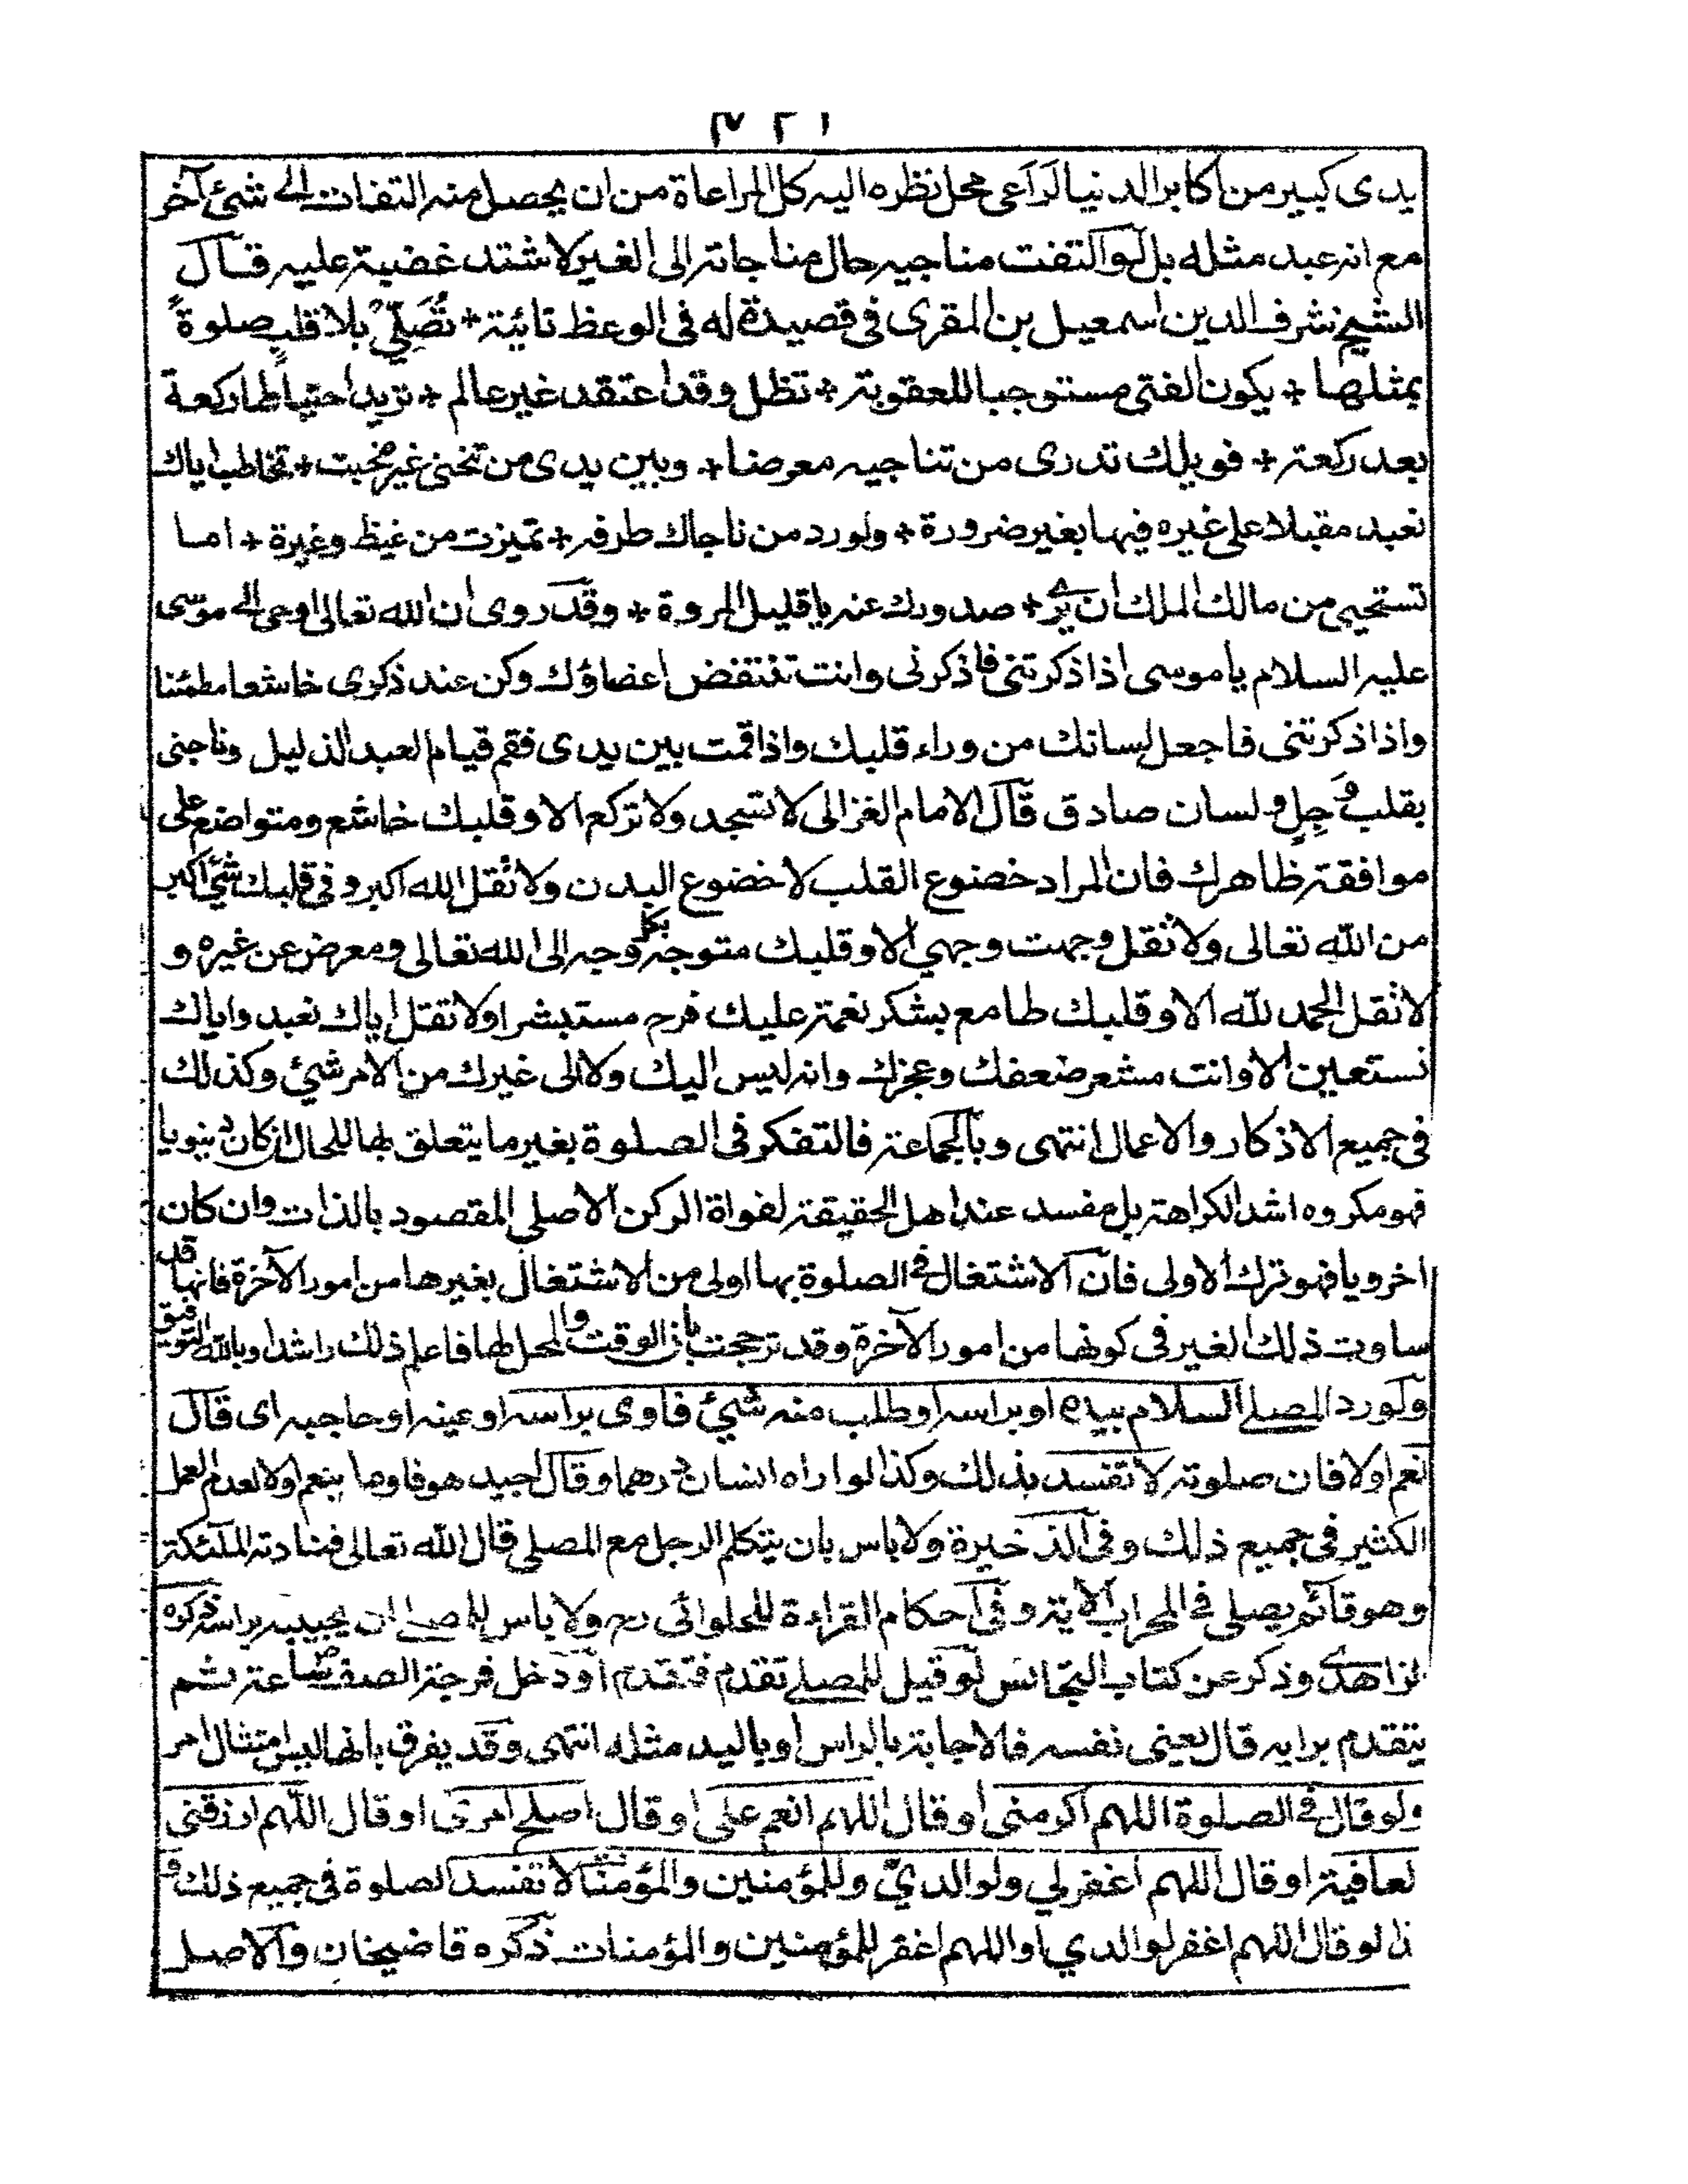 ٤٢١
يدى كبير من اكابر الدنيا لراعى محل نظره اليه كل المراعاة من ان يحصل منه التفات الى شئ آخر
مع انه عبد مثله بل لو التفت مناجيه حال مناجاته الى الغير لاشتد غضبه عليه قال
الشيخ شرف الدين اسمعيل بن المقرى فى قصيدة له فى الوعظ تائية + تُصَلِّيْ بلا قلبٍ صلوةً
بمثلها + يكون الفتى مستوجبا للعقوبة + تظل وقد اعتقد غير عالم + تزيد احتياطا ركعة
بعد ركعة + فويلك تدرى من تناجيه معرضا + وبين يدى من تنحنى غير مخبت + تخاطب اياك
نعبد مقبلا على غيره فيها بغير ضرورة + ولو رد من ناجاك طرفه + تميزت من غيظ وغيرة + اما
تستحيى من مالك الملك ان يرى + صدودك عنه يا قليل المروة + وقد روى ان الله تعالى اوحى الى موسى
عليه السلام يا موسى اذا ذكرتنى فاذكرنى وانت تنتفض اعضاؤك وكن عند ذكرى خاشعا مطمئنا
واذا ذكرتنى فاجعل لسانك من وراء قلبك واذا قمت بين يدى فقم قيام العبد الذليل وناجنى
بقلب وَجِلٍ ولسان صادق قال الامام الغزالى لا تسجد ولا تركع الا وقلبك خاشع ومتواضع على
موافقة ظاهرك فان المراد خضوع القلب لا خضوع البدن ولا تقل الله اكبر وفى قلبك شئ اكبر
من الله تعالى ولا تقل وجهت وجهي الا وقلبك متوجه بكل وجه الى الله تعالى ومعرض عن غيره و
لا تقل الحمد لله الا وقلبك طامع بشكر نعمته عليك فرح مستبشر اولا تقل اياك نعبد واياك
نستعين الا وانت مشعر ضعفك وعجزك وانه ليس اليك ولا الى غيرك من الامر شئ وكذلك
فى جميع الاذكار والاعمال انتهى وبالجماعة فالتفكر فى الصلوة بغير ما يتعلق بها للحال ان كان دنيويا
فهو مكروه اشد الكراهة بل مفسد عند اهل الحقيقة لفواة الركن الاصلى المقصود بالذات وان كان
اخرويا فهو ترك الاولى فان الاشتغال فى الصلوة بها اولى من الاشتغال بغيرها من امور الآخرة فانها قد
ساوت ذلك الغير فى كونها من امور الآخرة وقد ترجحت بان الوقت والمحل لها فاعلم ذلك راشدا وبالله التوفيق
ولو رد المصلى السلام بيده او براسه او طلب منه شئ فاومى براسه او عينه او حاجبه اى قال
نعم اولا فان صلوته لا تفسد بذلك وكذا لو اراه انسان درهما وقال اجيد هو فاومأ بنعم اولا لعدم العمل
الكثير فى جميع ذلك وفى الذخيرة ولا باس بان يتكلم الرجل مع المصلى قال الله تعالى فنادته الملئكة
وهو قائم يصلى فى المحراب الآية وفى احكام القراءة للحلوائى رح ولا باس للمصلى ان يجيبه براسه ذكره
الزاهدى وذكر عن كتاب التجانس لو قيل للمصلى تقدم فتقدم او دخل فرجة الصف ساعة ثم
يتقدم برايه قال يعنى نفسه فالاجابة بالراس او باليد مثله انتهى وقد يفرق بانها ليس امتثال امر
ولو قال فى الصلوة اللهم اكرمنى او قال اللهم انعم على او قال اصلح امرى او قال اللهم ارزقنى
لعافية او قال اللهم اغفر لي ولوالديّ وللمؤمنين والمؤمنات لا تفسد الصلوة فى جميع ذلك و
ذا لو قال اللهم اغفر لوالدي او اللهم اغفر للمؤمنين والمؤمنات ذكره قاضيخان والاصل